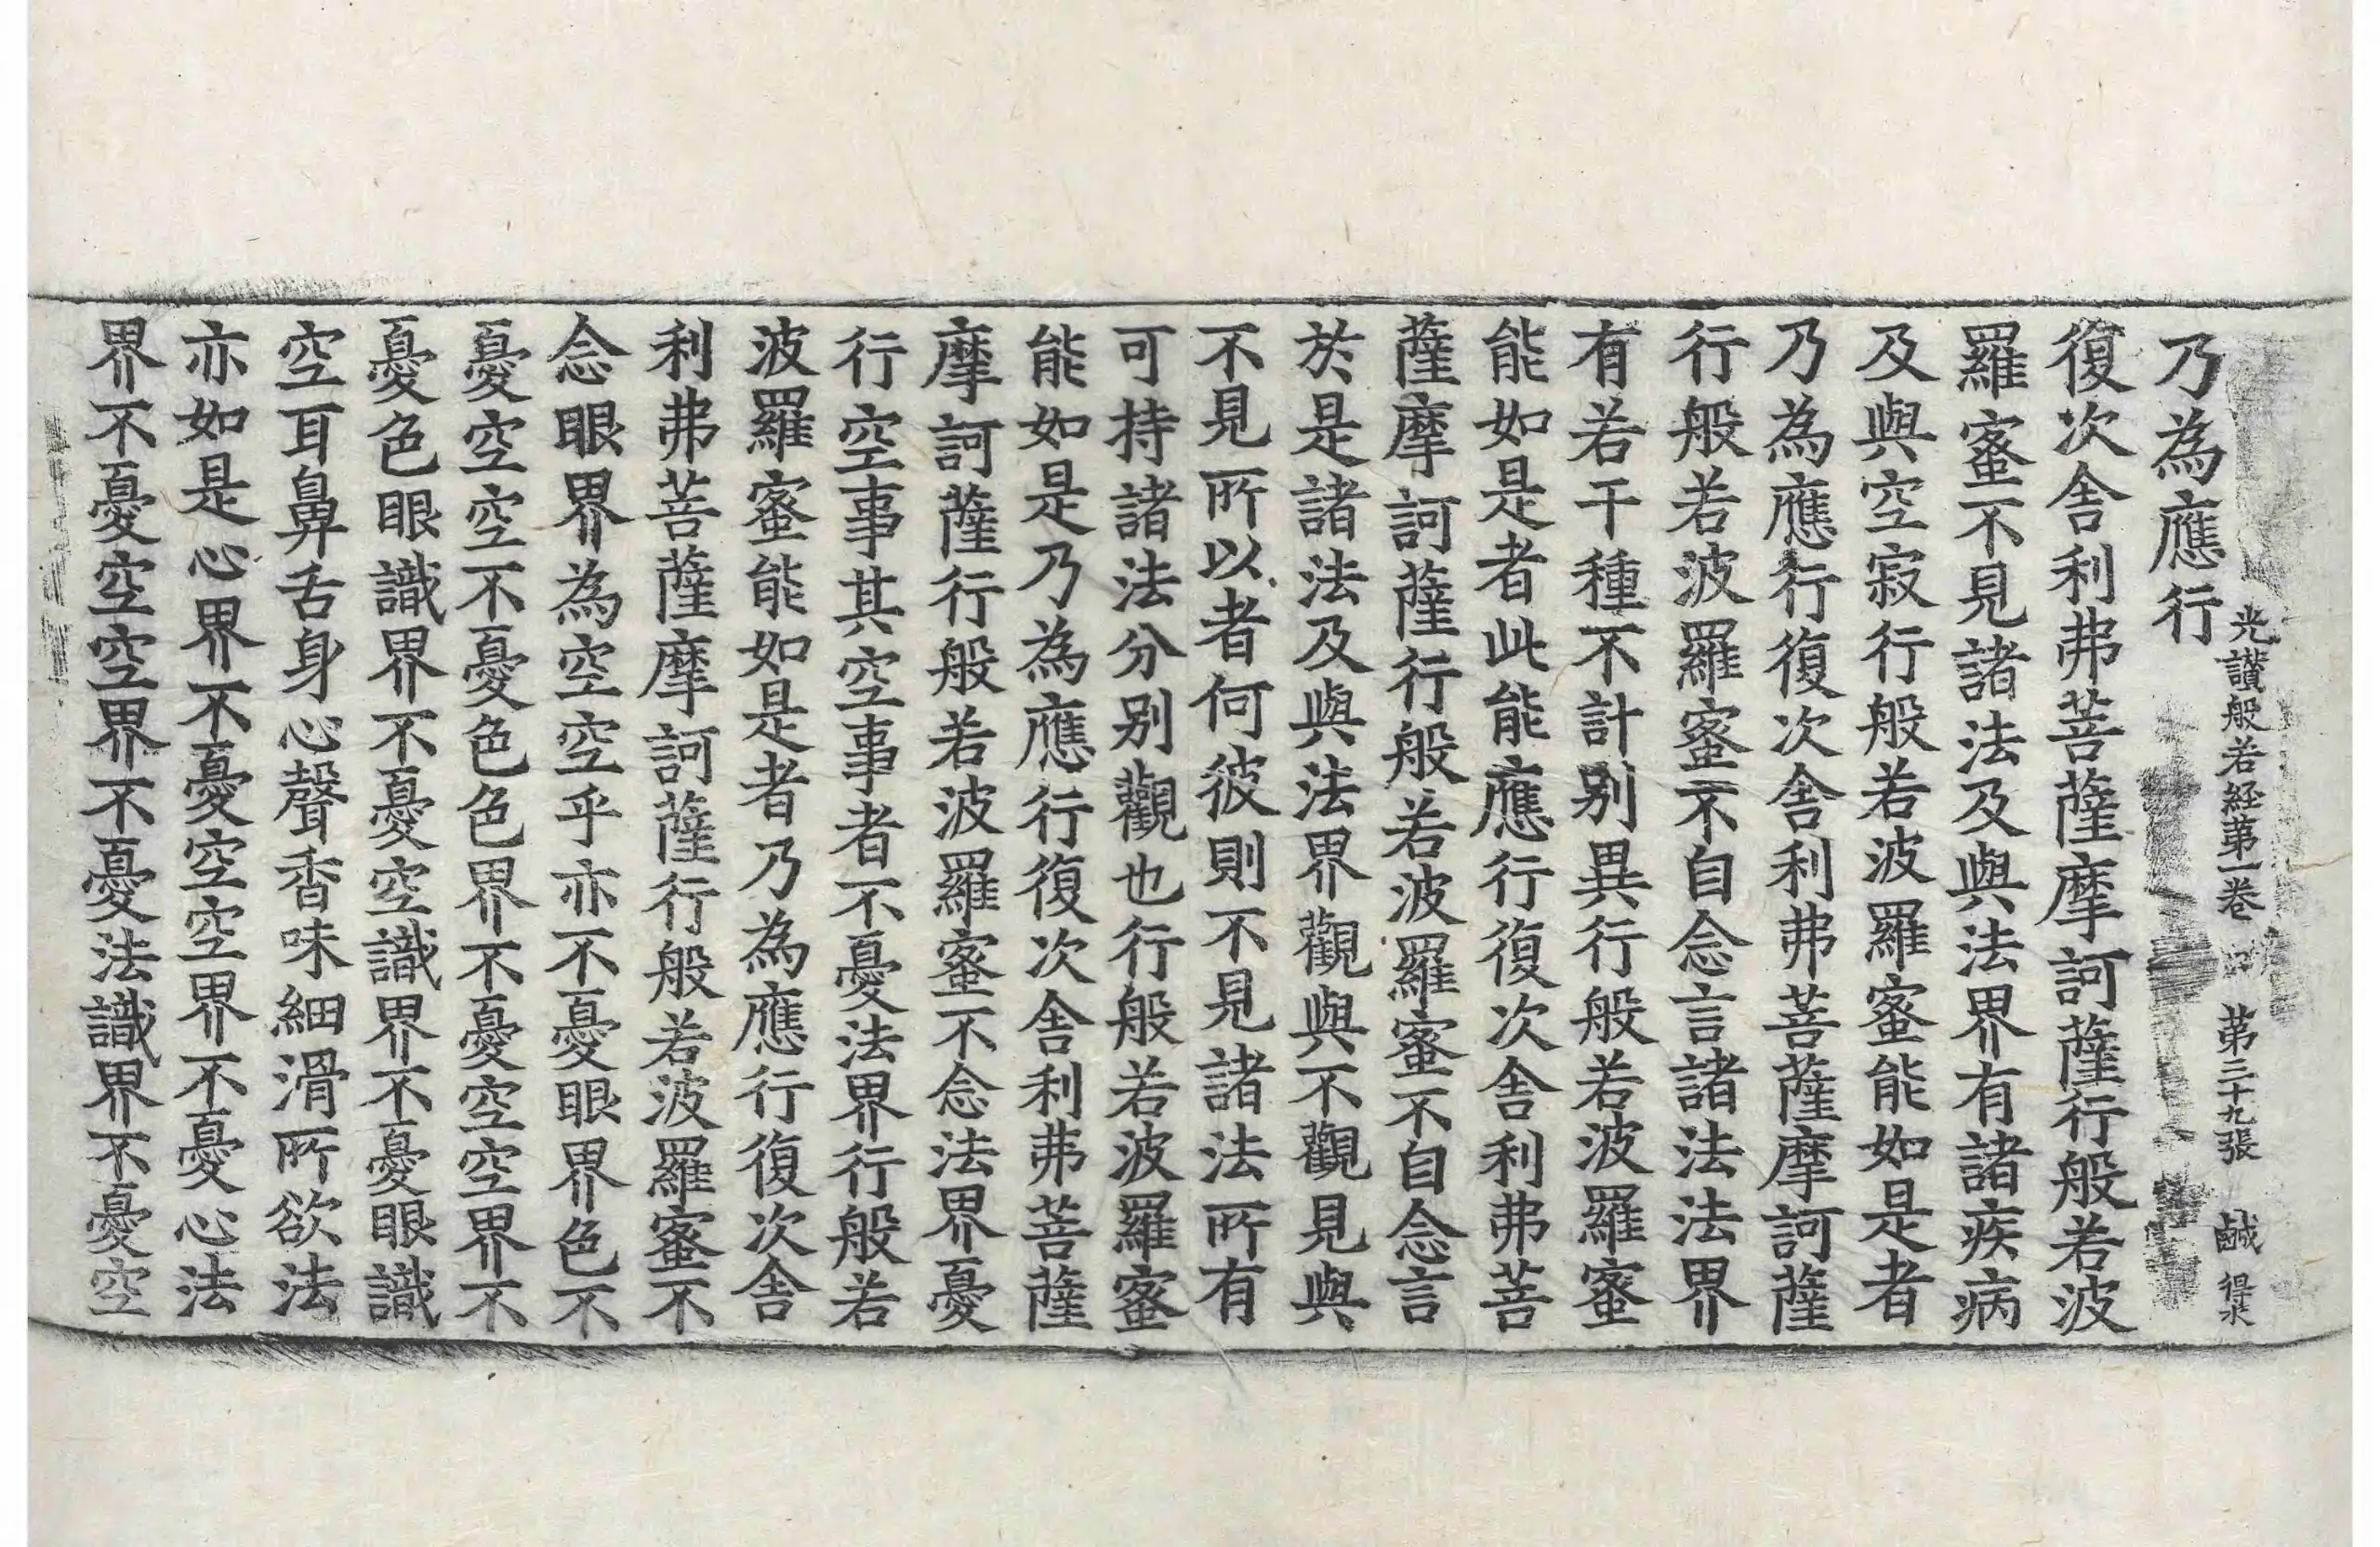 光讚般若經第一卷 第三十九張 鹹 得氷
乃為應行
復次舍利弗菩薩摩訶薩行般若波
羅蜜不見諸法及與法界有諸疾病
及與空寂行般若波羅蜜能如是者
乃為應行復次舍利弗菩薩摩訶薩
行般若波羅蜜不自念言諸法法界
有若干種不計別異行般若波羅蜜
能如是者此能應行復次舍利弗菩
薩摩訶薩行般若波羅蜜不自念言
於是諸法及與法界觀與不觀見與
不見所以者何彼則不見諸法所有
可持諸法分別觀也行般若波羅蜜
能如是乃為應行復次舍利弗菩薩
摩訶薩行般若波羅蜜不念法界憂
行空事其空事者不憂法界行般若
波羅蜜能如是者乃為應行復次舍
利弗菩薩摩訶薩行般若波羅蜜不
念眼界為空空乎亦不憂眼界色不
憂空空不憂色色界不憂空空界不
憂色眼識界不憂空識界不憂眼識
空耳鼻舌身心聲香味細滑所欲法
亦如是心界不憂空空界不憂心法
界不憂空空界不憂法識界不憂空